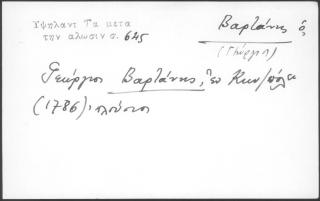 Υψηλαντ Τα μετα
την αλωσιν σ. 645
Βαρτάνης ὁ
(Γεώργιος)
Γεώργιος Βαρτάνης, ἐν Κων/πόλει
(1786), πλούσιος